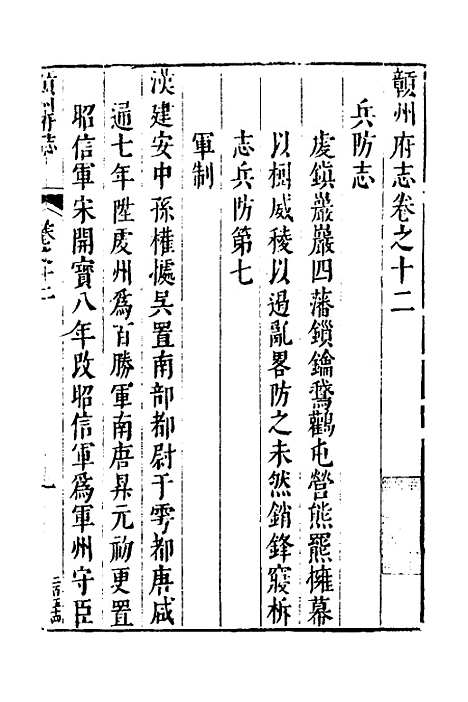 贛州府志卷之十二
兵防志
虔鎮巖巖四藩鎖鑰鵞鸛屯營熊羆擁幕
以樹威稜以遏亂畧防之未然銷鋒寢柝
志兵防第七
軍制
漢建安中孫權據吳置南部都尉于雩都唐咸
通七年陞虔州爲百勝軍南唐昇元初更置
昭信軍宋開寶八年改昭信軍爲軍州守臣
贛州府志
卷之十二
一